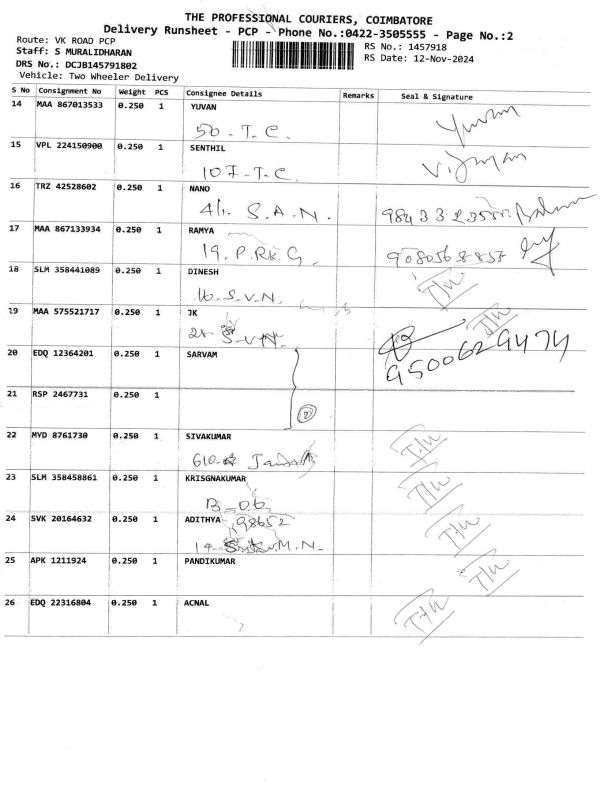 THE PROFESSIONAL COURIERS, COIMBATORE
Delivery Runsheet - PCP - Phone No.:0422-3505555 - Page No.:2
Route: VK ROAD PCP
RS No.: 1457918
Staff: S MURALIDHARAN
RS Date: 12-Nov-2024
DRS No.: DCJB145791802
Vehicle: Two Wheeler Delivery
S No Consignment No Weight PCS Consignee Details Remarks Seal & Signature
14 MAA 867013533 0.250 1 YUVAN
50 - T. C. Yuvan
15 VPL 224150900 0.250 1 SENTHIL
107 - T. C.
16 TRZ 42528602 0.250 1 NANO
4/1. S. A. N.
17 MAA 867133934 0.250 1 RAMYA
19. P. RK. G.
18 SLM 358441089 0.250 1 DINESH
16. S. V. N.
19 MAA 575521717 0.250 1 JK
21- S. V. N.
9500629474
20 EDQ 12364201 0.250 1 SARVAM
21 RSP 2467731 0.250 1
22 MYD 8761730 0.250 1 SIVAKUMAR
610-
23 SLM 358458861 0.250 1 KRISGNAKUMAR
B_06
24 SVK 20164632 0.250 1 ADITHYA 98652
14- M. N-
25 APK 1211924 0.250 1 PANDIKUMAR
26 EDQ 22316804 0.250 1 ACNAL